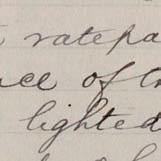 ratepa
ce of th
lighted